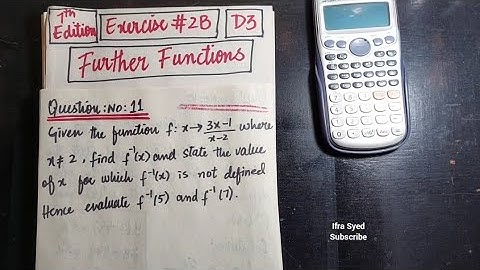 7th Edition Exercise #2B D3
Further Functions
Question:No:11
Given the function f: x→ 3x-1/x-2 where
x≠2, find f⁻¹(x) and state the value
of x for which f⁻¹(x) is not defined
Hence evaluate f⁻¹(5) and f⁻¹(7).
Ifra Syed
Subscribe